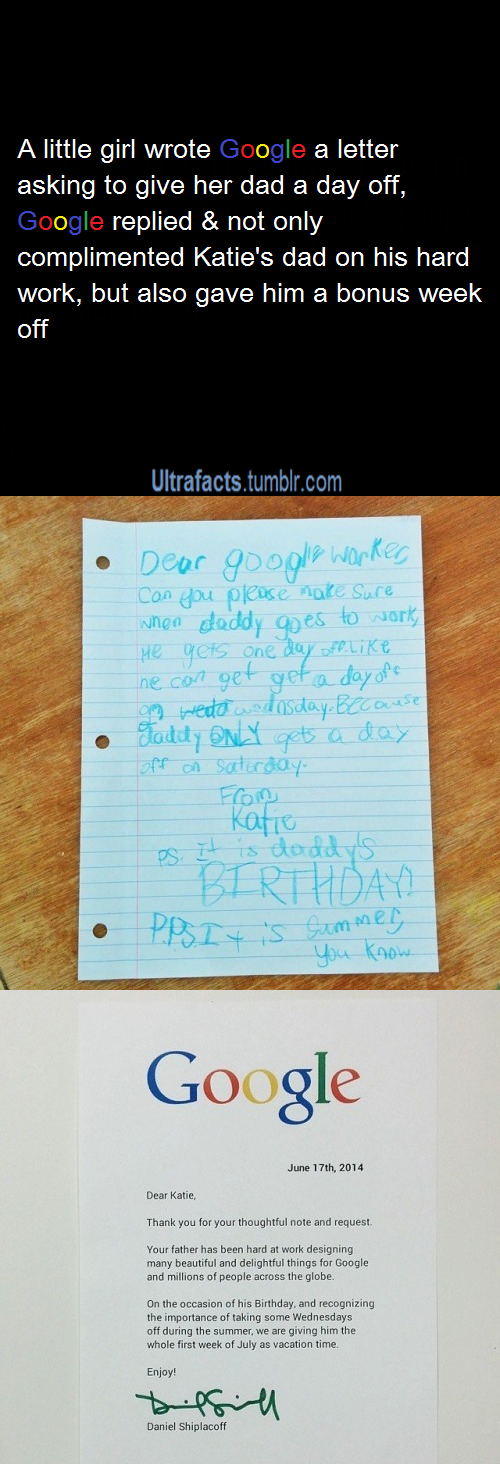 A little girl wrote Google a letter
asking to give her dad a day off,
Google replied & not only
complimented Katie's dad on his hard
work, but also gave him a bonus week
off
Ultrafacts.tumblr.com
Dear google worker,
Can you please make sure
when daddy goes to work,
He gets one day off. Like
he can get get a day off
on wedd wednsday. BECause
daddy ONLY gets a day
off on Saturday.
From,
Katie
PS. It is daddy's
BIRTHDAY!
P.P.S It is Summer,
you know
Google
June 17th, 2014
Dear Katie,
Thank you for your thoughtful note and request.
Your father has been hard at work designing
many beautiful and delightful things for Google
and millions of people across the globe.
On the occasion of his Birthday, and recognizing
the importance of taking some Wednesdays
off during the summer, we are giving him the
whole first week of July as vacation time.
Enjoy!
Daniel Shiplacoff